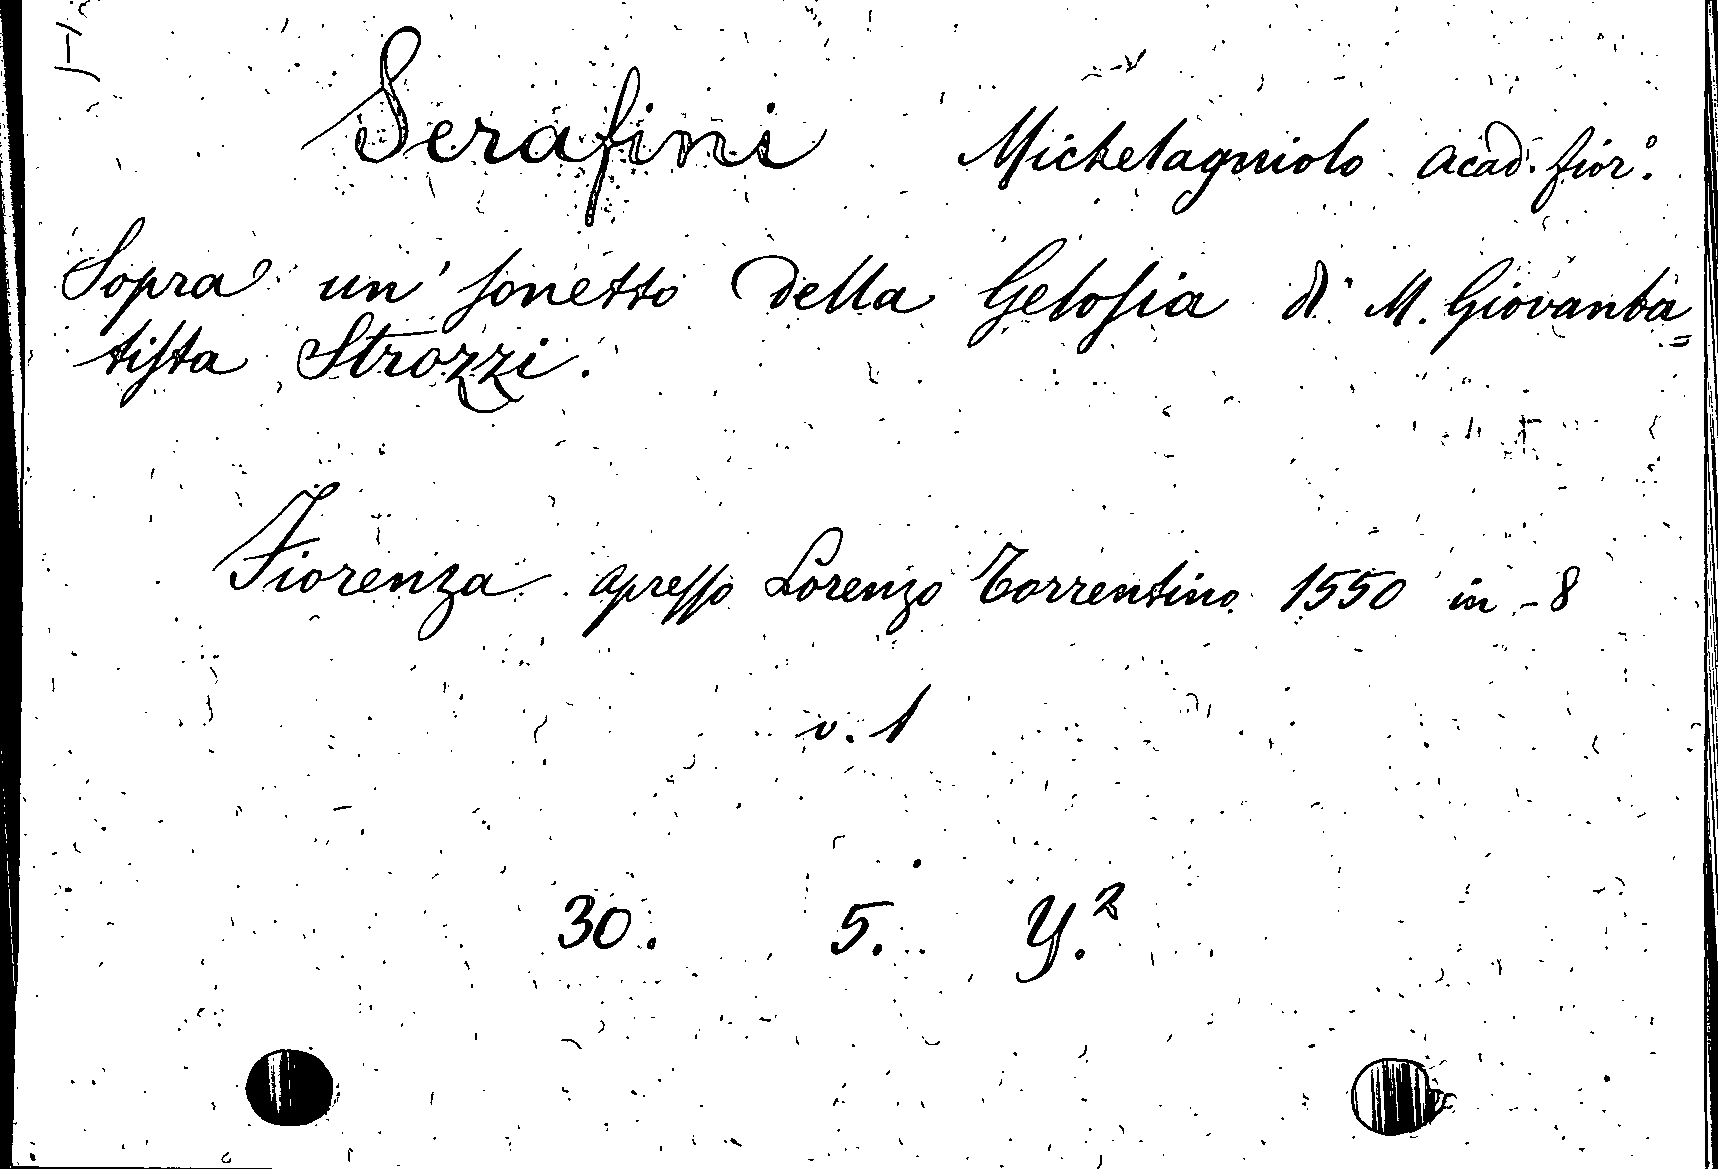 Serafini Michelagniolo acad. fior.º
Sopra un' sonetto della Gelosia di M. Giovanba=
tista Strozzi.
Fiorenza apresso Lorenzo Torrentino 1550 in-8
v. 1
30. 5. Y.²